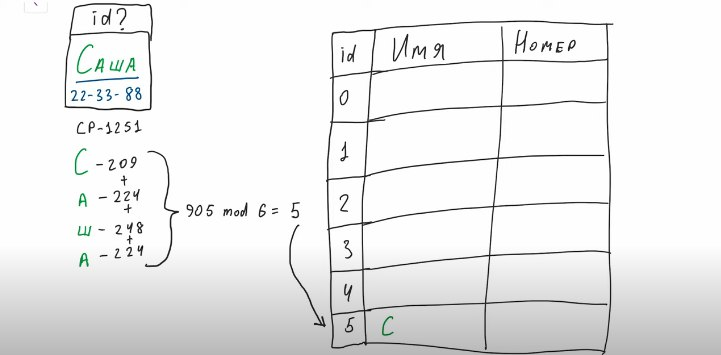 id?
Саша
22-33-88
CP-1251
С - 209
+
А - 224
+
Ш - 248
+
А - 224
905 mod 6 = 5
id Имя Номер
0
1
2
3
4
5 С